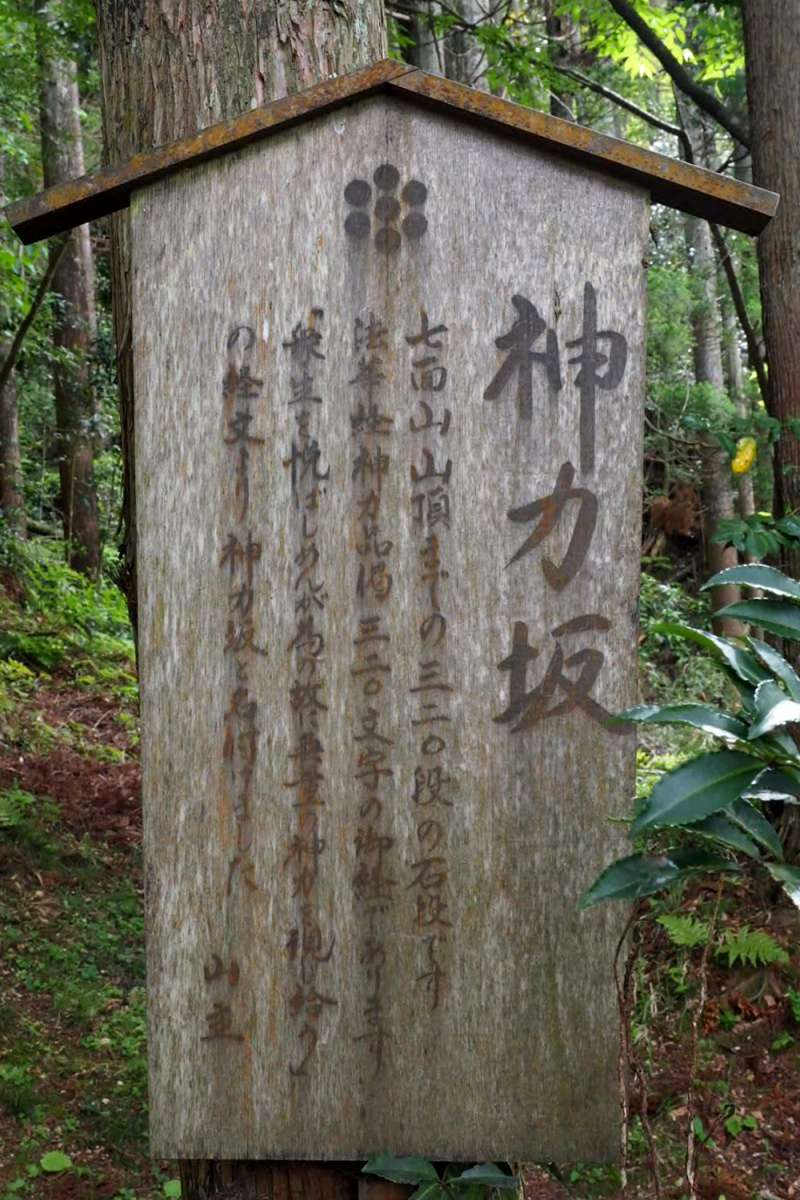 神力坂
七面山山頂までの三二〇段の石段です
法華経神力品偈三二〇文字の御経であります
「衆生を悦ばしめんが為の故に無量の神力を現じ給う」
の経文より神力坂と名付けました
山主